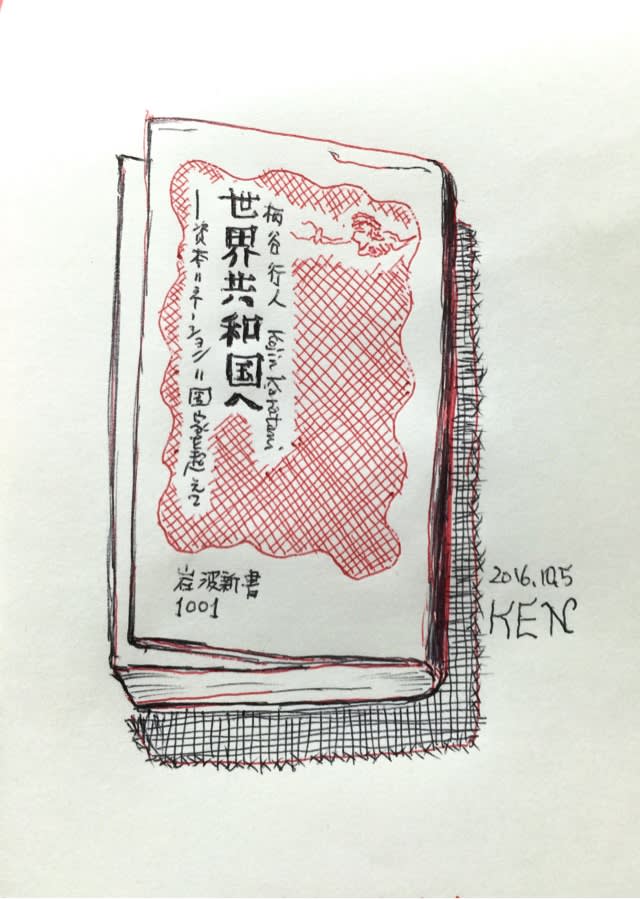 柄谷行人 Kojin Karatani
世界共和国へ
―資本=ネーション=国家を超えて
岩波新書
1001
2016.10.5
KEN